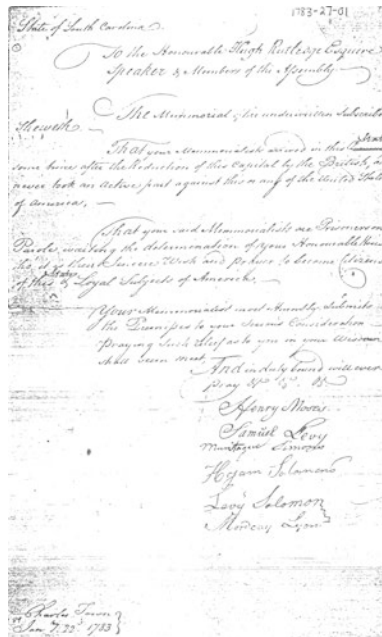 1783-27-01
State of South Carolina
To the Honourable Hugh Rutledge Esquire
Speaker & Members of the Assembly
The Memmorial of the underwritten Subscribers
Sheweth
That your Memmorialists arrived in this State
some time after the Reduction of this Capital by the British, &
never took an active part against this or any of the United States
of America,
That your said Memmorialists are Prisoners on
Parole, waiting the determination of your Honourable House
Sincere Wish and to become Citizens
of this State & Loyal Subjects of America.
Your Memmorialist most Humbly Submits
the Premises to your Serious Consideration
Praying such Relief as to you in your Wisdom
shall seem meet,
And in duty bound will ever
pray &c &c &c
Henry Moses
Samuel Levy
Montague Simons
Hyam Solomons
Levy Solomon
Mordecay Lyon
Charles Town
Jany 22d 1783